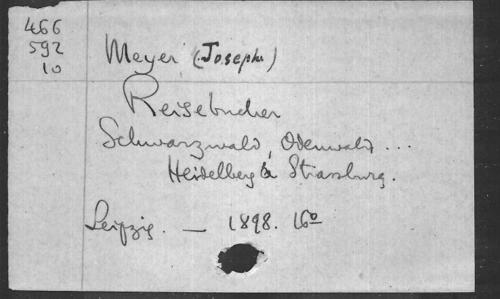 466
592
10
Meyer (Joseph)
Reisebucher
Schwarzwald, Odenwald...
Heidelberg & Strassburg.
Leipzig. — 1898. 16º